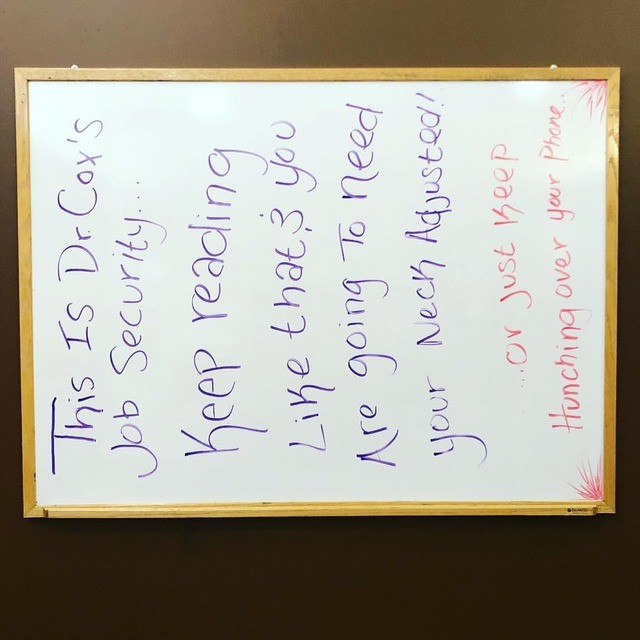 This Is Dr. Cox's
Job Security...
Keep reading
Like that & you
Are going To need
your Neck Adjusted!
...or just keep
Hunching over your Phone...